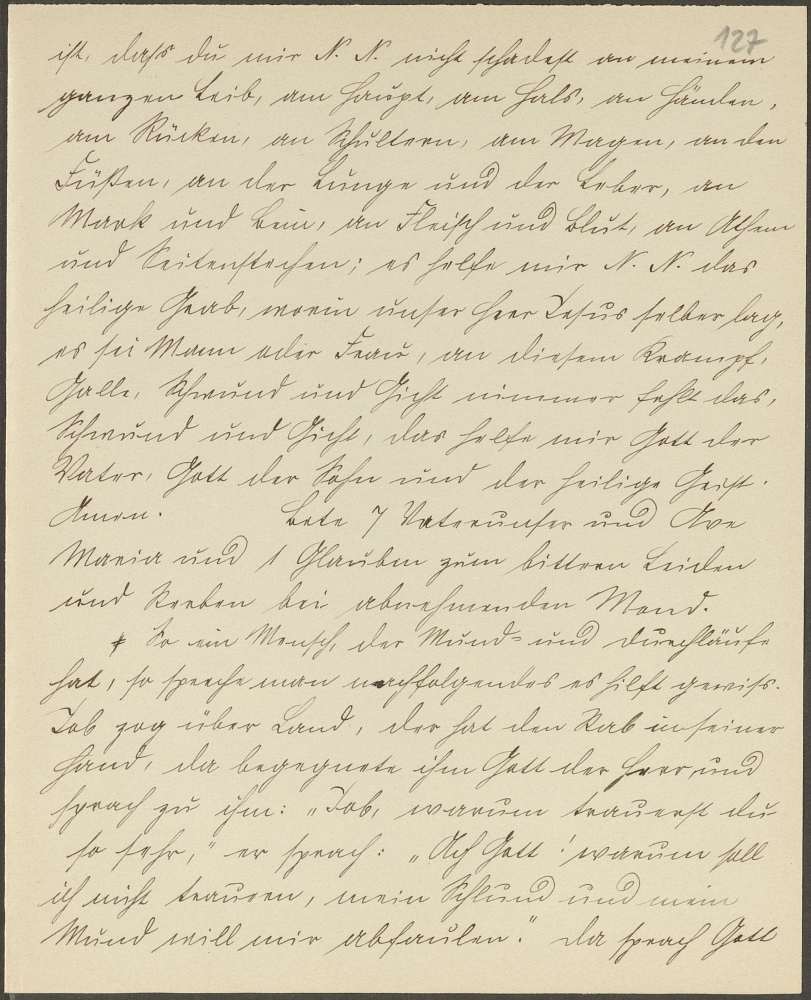 127
ist, dass du mir N. N. nicht schadest an meinem
ganzen Leib, am Haupt, am Hals, an Händen,
am Rücken, an Schultern, am Magen, an den
Füßen, an der Lunge und der Leber, an
Mark und Bein, an Fleisch und Blut, an Athem
und Seitenstechen; es helfe mir N. N. das
heilige Grab, worin unser Herr Jesus selber lag,
es sei Mann oder Frau, an diesem Krampf,
Galle, Schwund und Gicht nimmer fehlt das,
Schwund und Gicht, das helfe mir Gott der
Vater, Gott der Sohn und der heilige Geist.
Amen. Bete 7 Vaterunser und Ave
Maria und 1 Glauben zum bittren Leiden
und Sterben bei abnehmenden Mond.
So ein Mensch, der Mund= und Durchläufe
hat, so spreche man nachfolgendes es hilft gewiss.
Job zog über Land, der hat den Stab in seiner
Hand, da begegnete ihm Gott der Herr, und
sprach zu ihm: „Job, warum trauerst du
so sehr," er sprach: „Ach Gott! warum soll
ich nicht trauren, mein Schlund und mein
Mund will mir abfaulen." Da sprach Gott